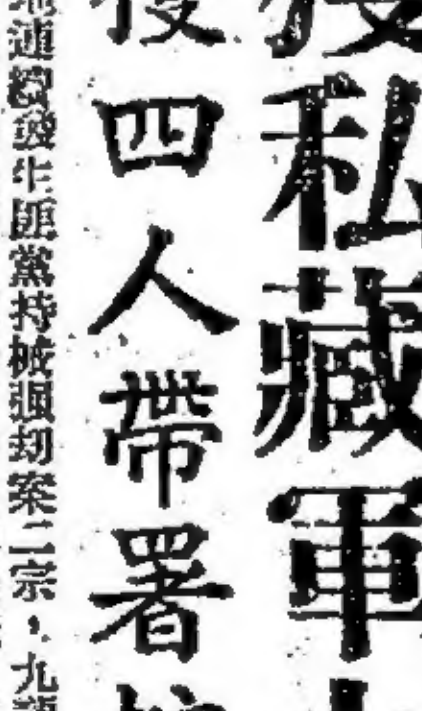 私藏軍
後四人帶署
連續發生匪黨持械强刧案二宗，九